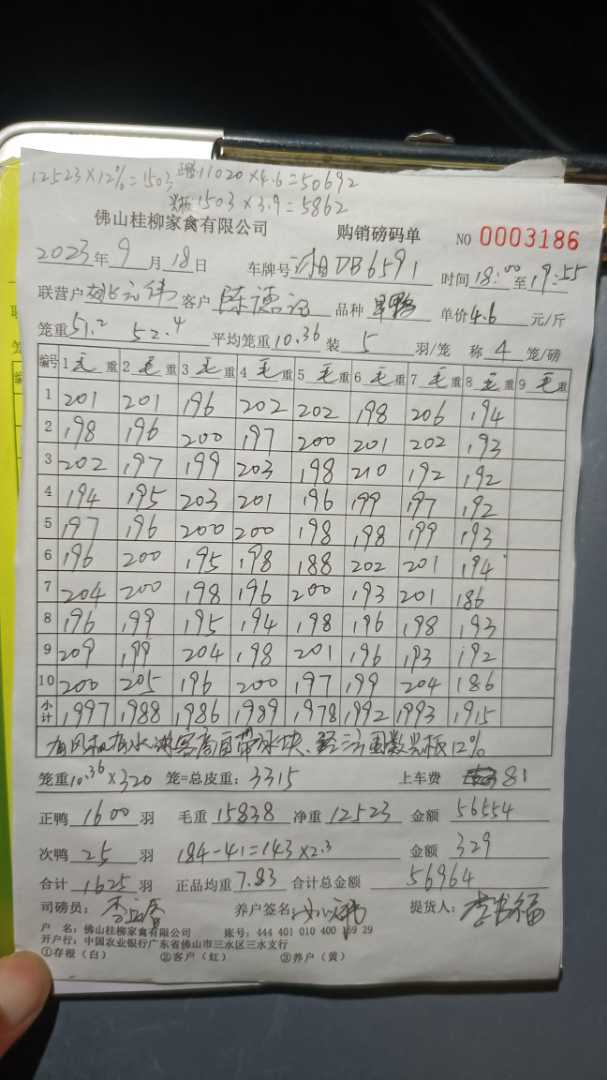 12523×12%=1503 正鸭11020×4.6=50692
1503×3.9=5862
佛山桂柳家禽有限公司 购销磅码单 NO 0003186
2023年9月18日 车牌号 DB6591 时间18:00至19:55
联营户 元伟 客户 陈德记 品种 单价4.6元/斤
笼重51.2 52.4 平均笼重10.36装5羽/笼 称4笼/磅
编号 1毛重 2毛重 3毛重 4毛重 5毛重 6毛重 7毛重 8毛重 9毛重
1 201 201 196 202 202 198 206 194
2 198 196 200 197 200 201 202 193
3 202 197 199 203 198 210 192 192
4 194 195 203 201 196 199 197 192
5 197 196 200 200 198 198 199 193
6 196 200 195 198 188 202 201 194
7 204 200 198 196 200 193 201 186
8 196 199 195 194 198 196 198 193
9 209 199 204 198 201 196 193 192
10 200 205 196 200 197 199 204 186
小计 1997 1988 1986 1989 1978 1992 1993 1915
有风机有水 客商自带冰块 12%
笼重10.36×320笼=总皮重:3315 上车费 81
正鸭1600羽 毛重15838净重12523金额56554
次鸭25羽 184-41=143×2.3 金额329
合计1625羽 正品均重7.83合计总金额56964
司磅员: 养户签名: 提货人:
户 名:佛山桂柳家禽有限公司 账号:444 401 010 400 169 29
开户行:中国农业银行广东省佛山市三水区三水支行
①存根(白) ②客户(红) ③养户(黄)